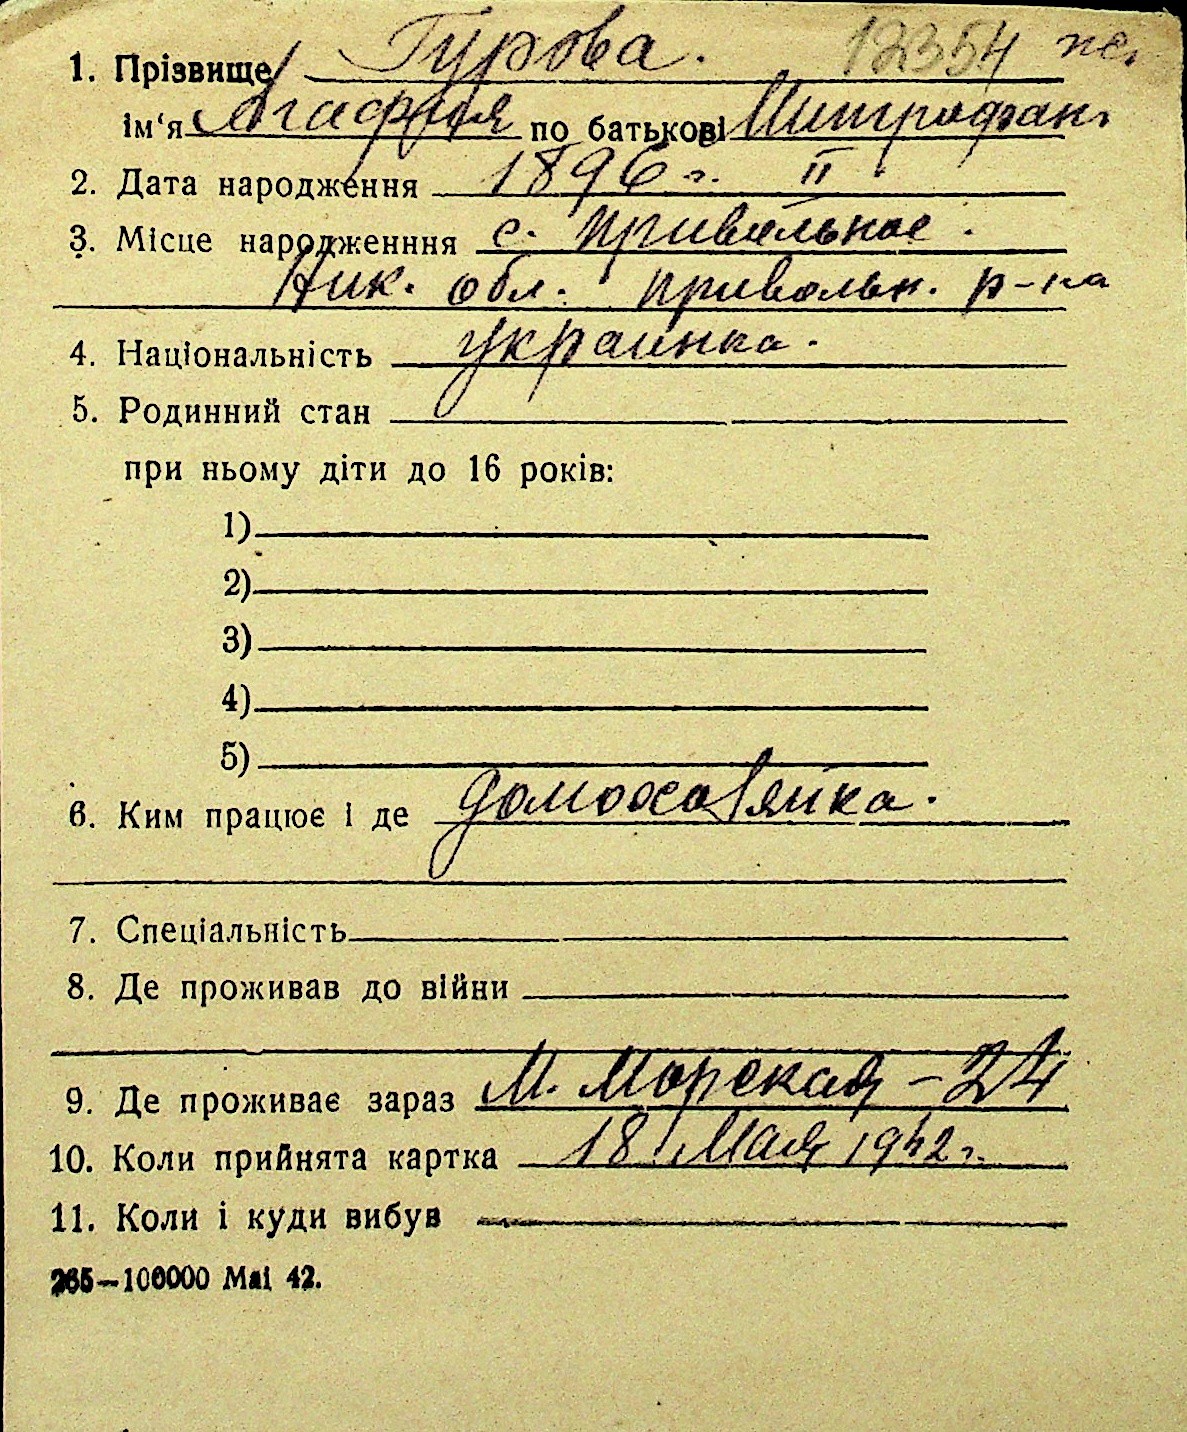 1. Прізвище Гурова. 12354 же.
ім'я Агафия по батькові Митрофан.
2. Дата народження 1896 г. II
3. Місце народженння с. Привольное.
Ник. обл. Привольн. р-на
4. Національність украинка.
5. Родинний стан
при ньому діти до 16 років:
1)
2)
3)
4)
5)
6. Ким працює і де домохозяйка.
7. Спеціальність
8. Де проживав до війни
9. Де проживає зараз М. Морская - 24
10. Коли прийнята картка 18 Мая 1942 г.
11. Коли і куди вибув
265—100000 Маі 42.